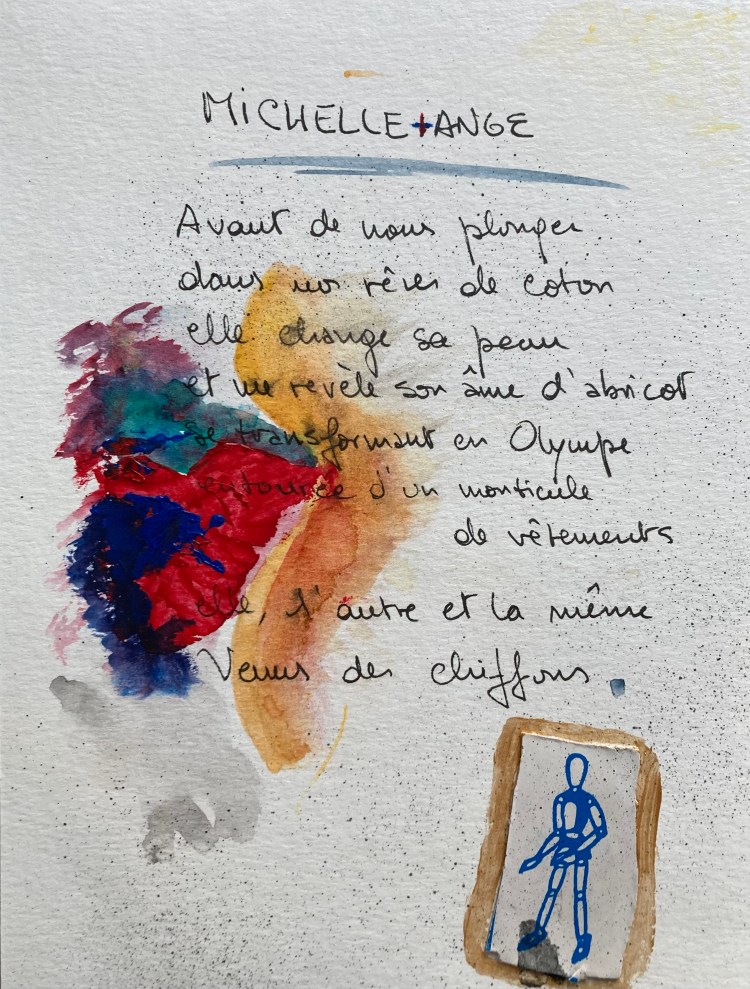 MiCHELLE+ANGE
Avant de nous plonger
dans nos rêves de coton
elle change sa peau
et me révèle son âme d'abricot
se transformant en Olympe
entourée d'un monticule
de vêtements
elle, l'autre et la même
Venus des chiffons.